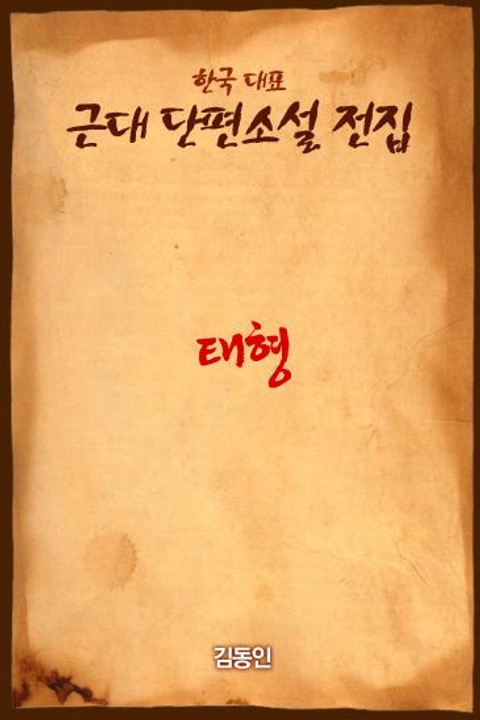 한국 대표
근대 단편소설 전집
태형
김동인